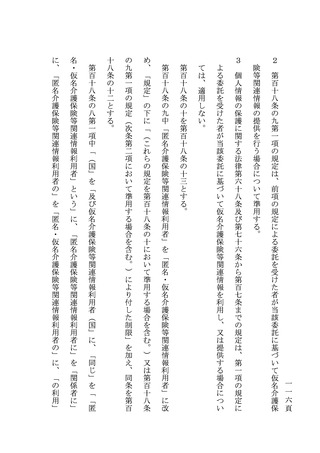 一一六頁
２　第百十八条の九第一項の規定は、前項の規定による委託を受けた者が当該委託に基づいて仮名介護保
険等関連情報の提供を行う場合について準用する。
３　個人情報の保護に関する法律第六十八条及び第七十六条から第百七条までの規定は、第一項の規定に
よる委託を受けた者が当該委託に基づいて仮名介護保険等関連情報を利用し、又は提供する場合につい
ては、適用しない。
第百十八条の十を第百十八条の十三とする。
第百十八条の九中「匿名介護保険等関連情報利用者」を「匿名・仮名介護保険等関連情報利用者」に改
め、「規定」の下に「（これらの規定を第百十八条の十において準用する場合を含む。）又は第百十八条
の九第一項の規定（次条第二項において準用する場合を含む。）により付した制限」を加え、同条を第百
十八条の十二とする。
第百十八条の八第一項中「（国」を「及び仮名介護保険等関連情報利用者（国」に、「同じ」を「「匿
名・仮名介護保険等関連情報利用者」という」に、「匿名介護保険等関連情報利用者に」を「関係者に」
に、「匿名介護保険等関連情報利用者の」を「匿名・仮名介護保険等関連情報利用者の」に、「の利用」